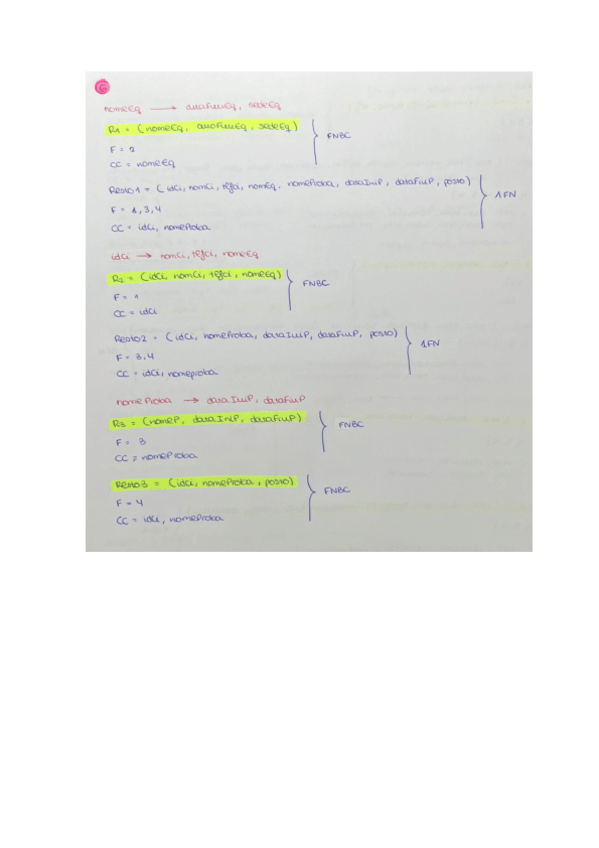 6
nomeEq → anoFunEq, sedeEq
R1 = (nomeEq, anoFunEq, sedeEq) } FNBC
F = 2
CC = nomeEq
Resto1 = (idCi, nomCi, tlfCi, nomEq, nomeProba, dataIniP, dataFinP, posto) } 1FN
F = 1, 3, 4
CC = idCi, nomeProba
idCi → nomCi, tlfCi, nomeEq
R2 = (idCi, nomCi, tlfCi, nomeEq) } FNBC
F = 1
CC = idCi
Resto2 = (idCi, nomeProba, dataIniP, dataFinP, posto) } 1FN
F = 3,4
CC = idCi, nomeproba
nomeProba → dataIniP, dataFinP
R3 = (nomeP, dataIniP, dataFinP) } FNBC
F = 3
CC = nomeProba
Resto3 = (idCi, nomeProba, posto) } FNBC
F = 4
CC = idCi, nomeProba